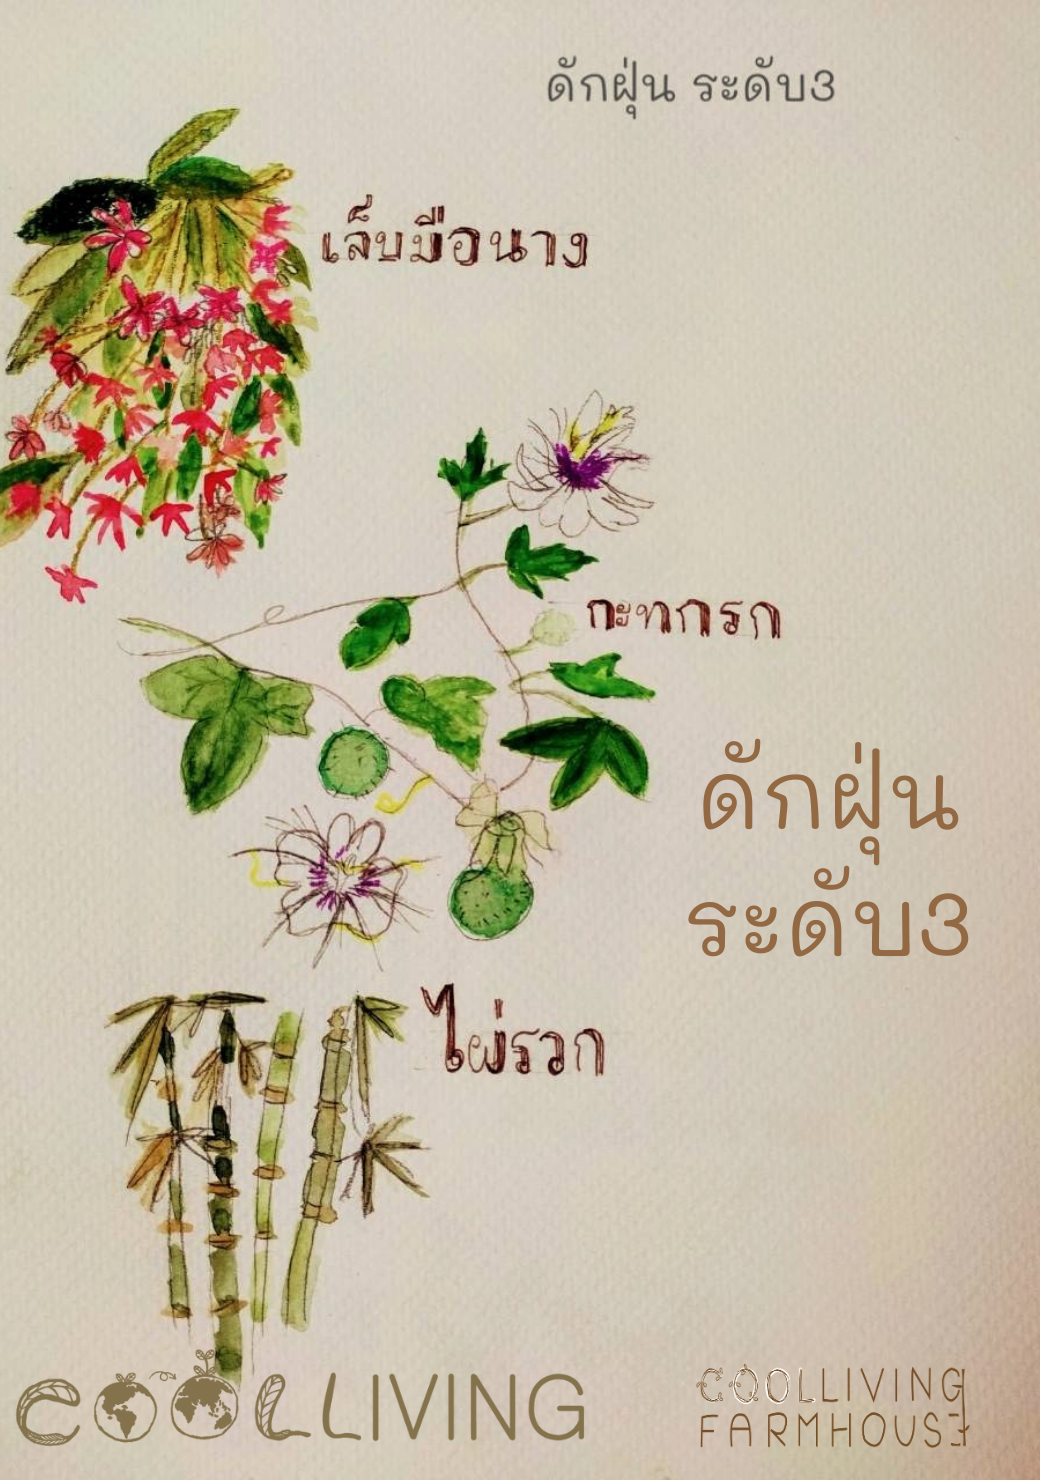 ดักฝุ่น ระดับ3
เล็บมือนาง
กะทกรก
ดักฝุ่น
ระดับ3
ไผ่รวก
COOLLIVING
COOLLIVING
FARMHOUSE